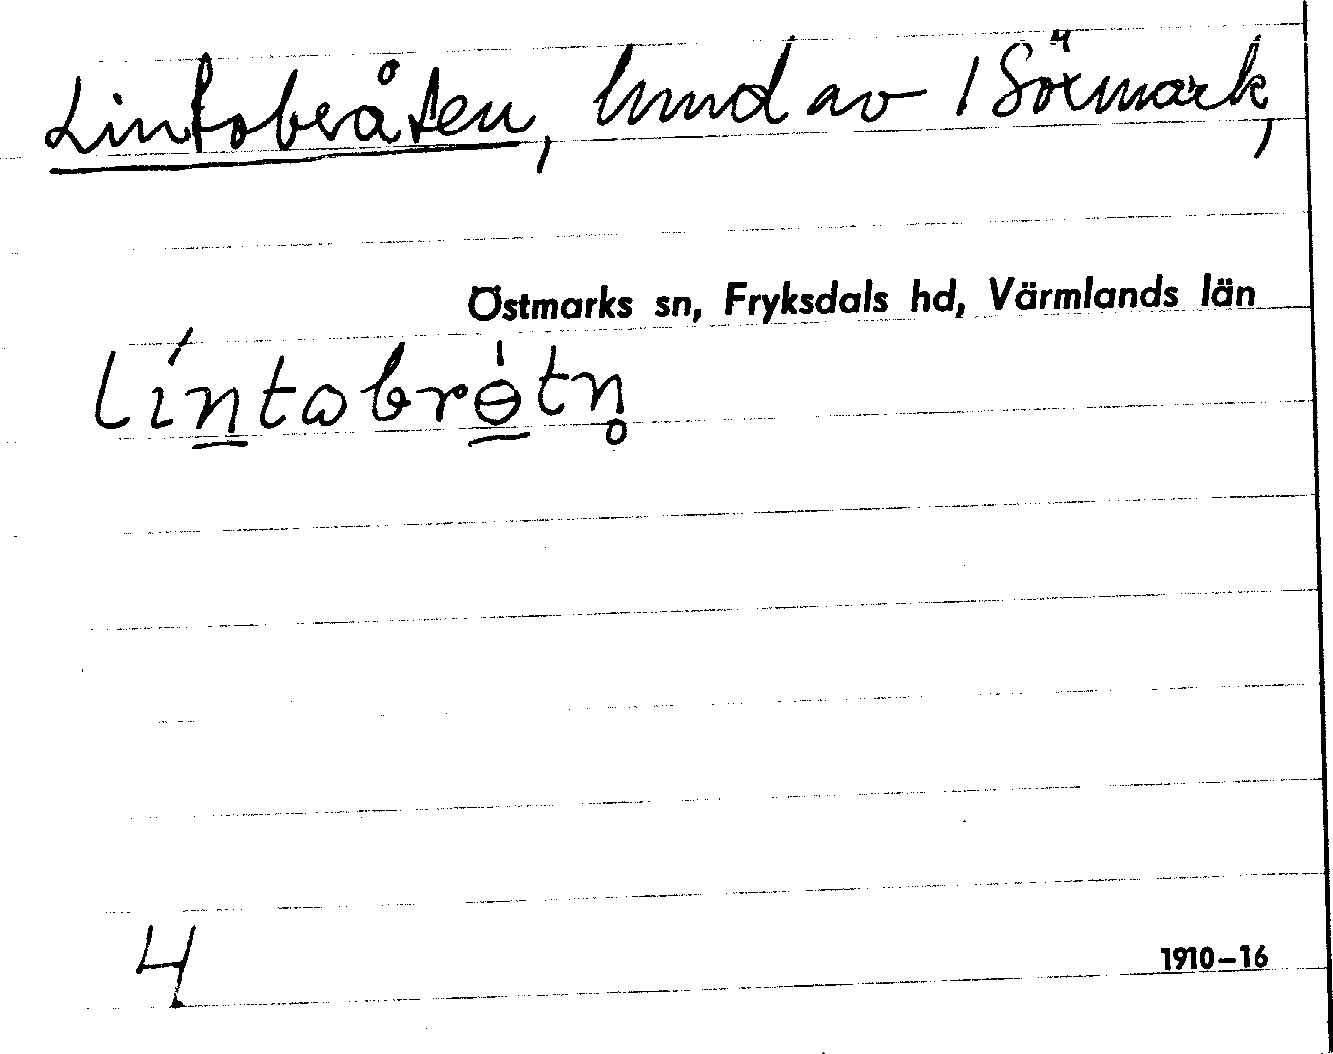 Lintobråten, hmd av 1 Sörmark,
Östmarks sn, Fryksdals hd, Värmlands län
líntobrɵ̀tn̥
4
1910–16